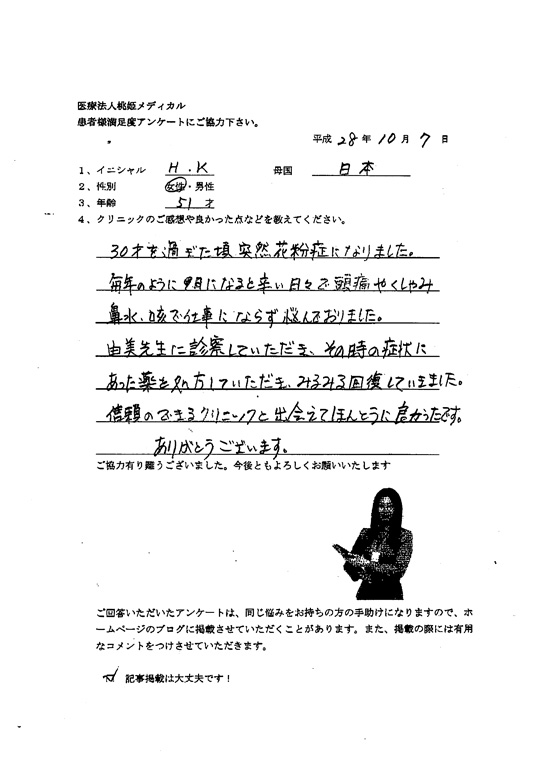 医療法人桃姫メディカル
患者様満足度アンケートにご協力下さい。
平成 28 年 10 月 7 日
1、イニシャル H.K 母国 日本
2、性別 女性・男性
3、年齢 51 才
4、クリニックのご感想や良かった点などを教えてください。
30才を過ぎた頃突然花粉症になりました。
毎年のように9月になると辛い日々で頭痛やくしゃみ
鼻水、咳で仕事にならず悩んでおりました。
由美先生に診察していただき、その時の症状に
あった薬を処方していただき、みるみる回復していきました。
信頼のできるクリニックと出会えてほんとうに良かったです。
ありがとうございます。
ご協力有り難うございました。今後ともよろしくお願いいたします
ご回答いただいたアンケートは、同じ悩みをお持ちの方の手助けになりますので、ホ
ームページのブログに掲載させていただくことがあります。また、掲載の際には有用
なコメントをつけさせていただきます。
記事掲載は大丈夫です！